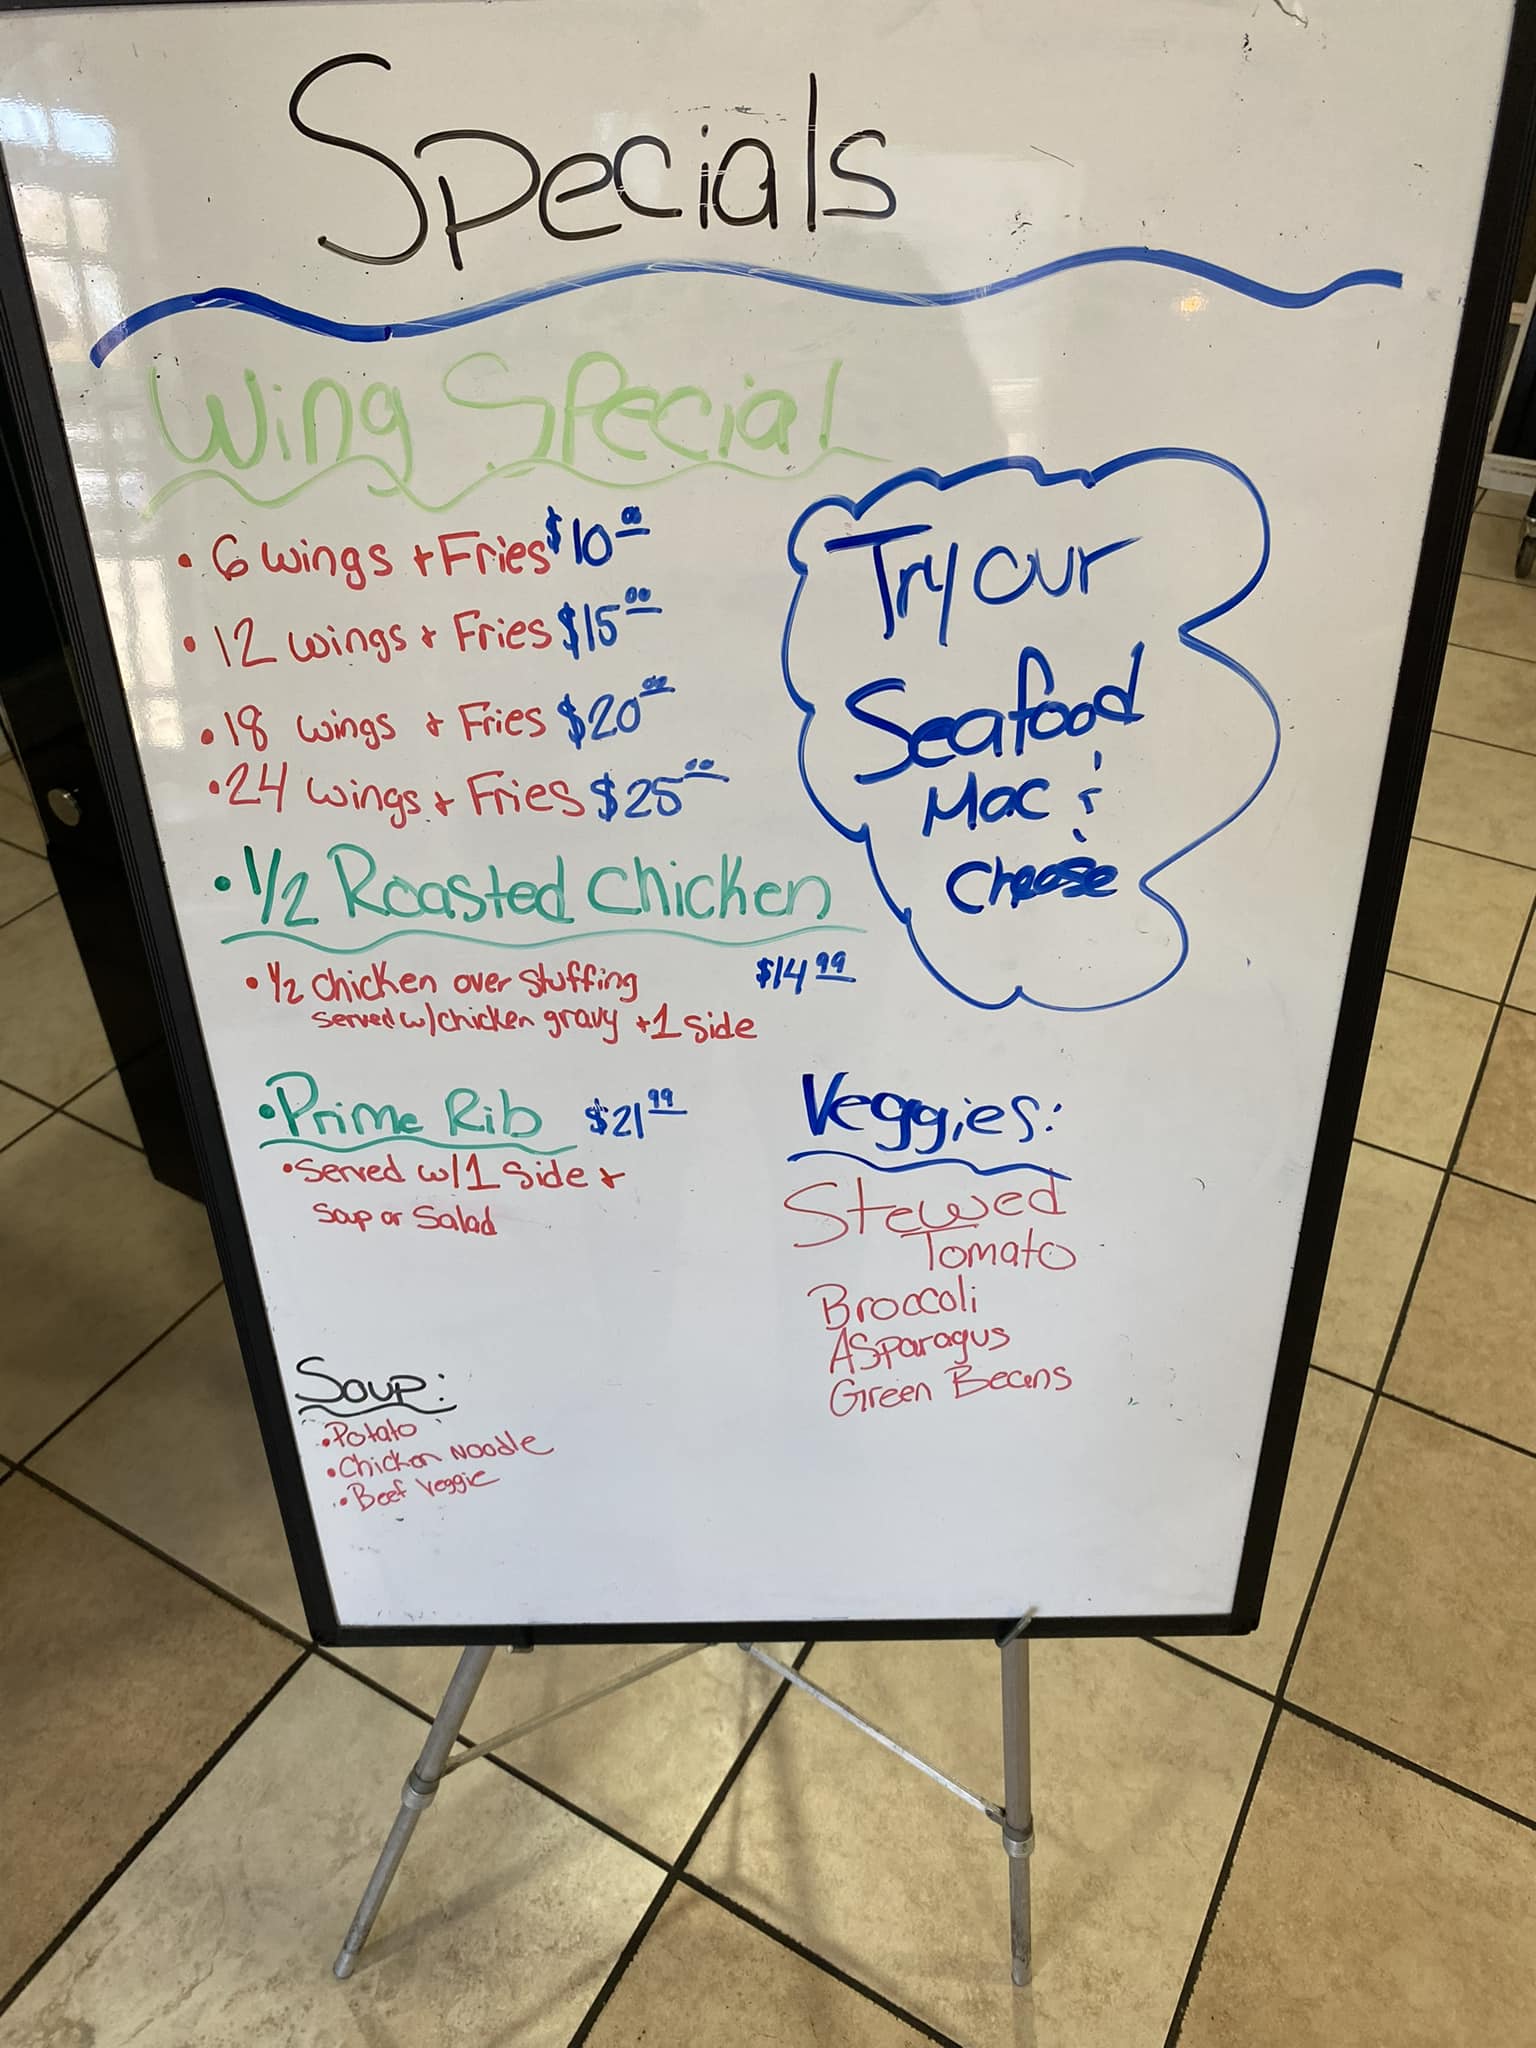 Specials
Wing Special
• 6 wings + Fries $10.00
• 12 wings + Fries $15.00
• 18 wings + Fries $20.00
• 24 wings + Fries $25.00
Try our
Seafood
Mac &
Cheese
• 1/2 Roasted Chicken
• 1/2 Chicken over stuffing $14.99
served w/chicken gravy + 1 side
• Prime Rib $21.99
• Served w/1 side +
soup or salad
Veggies:
Stewed
Tomato
Broccoli
Asparagus
Green Beans
Soup:
• Potato
• Chicken Noodle
• Beef Veggie